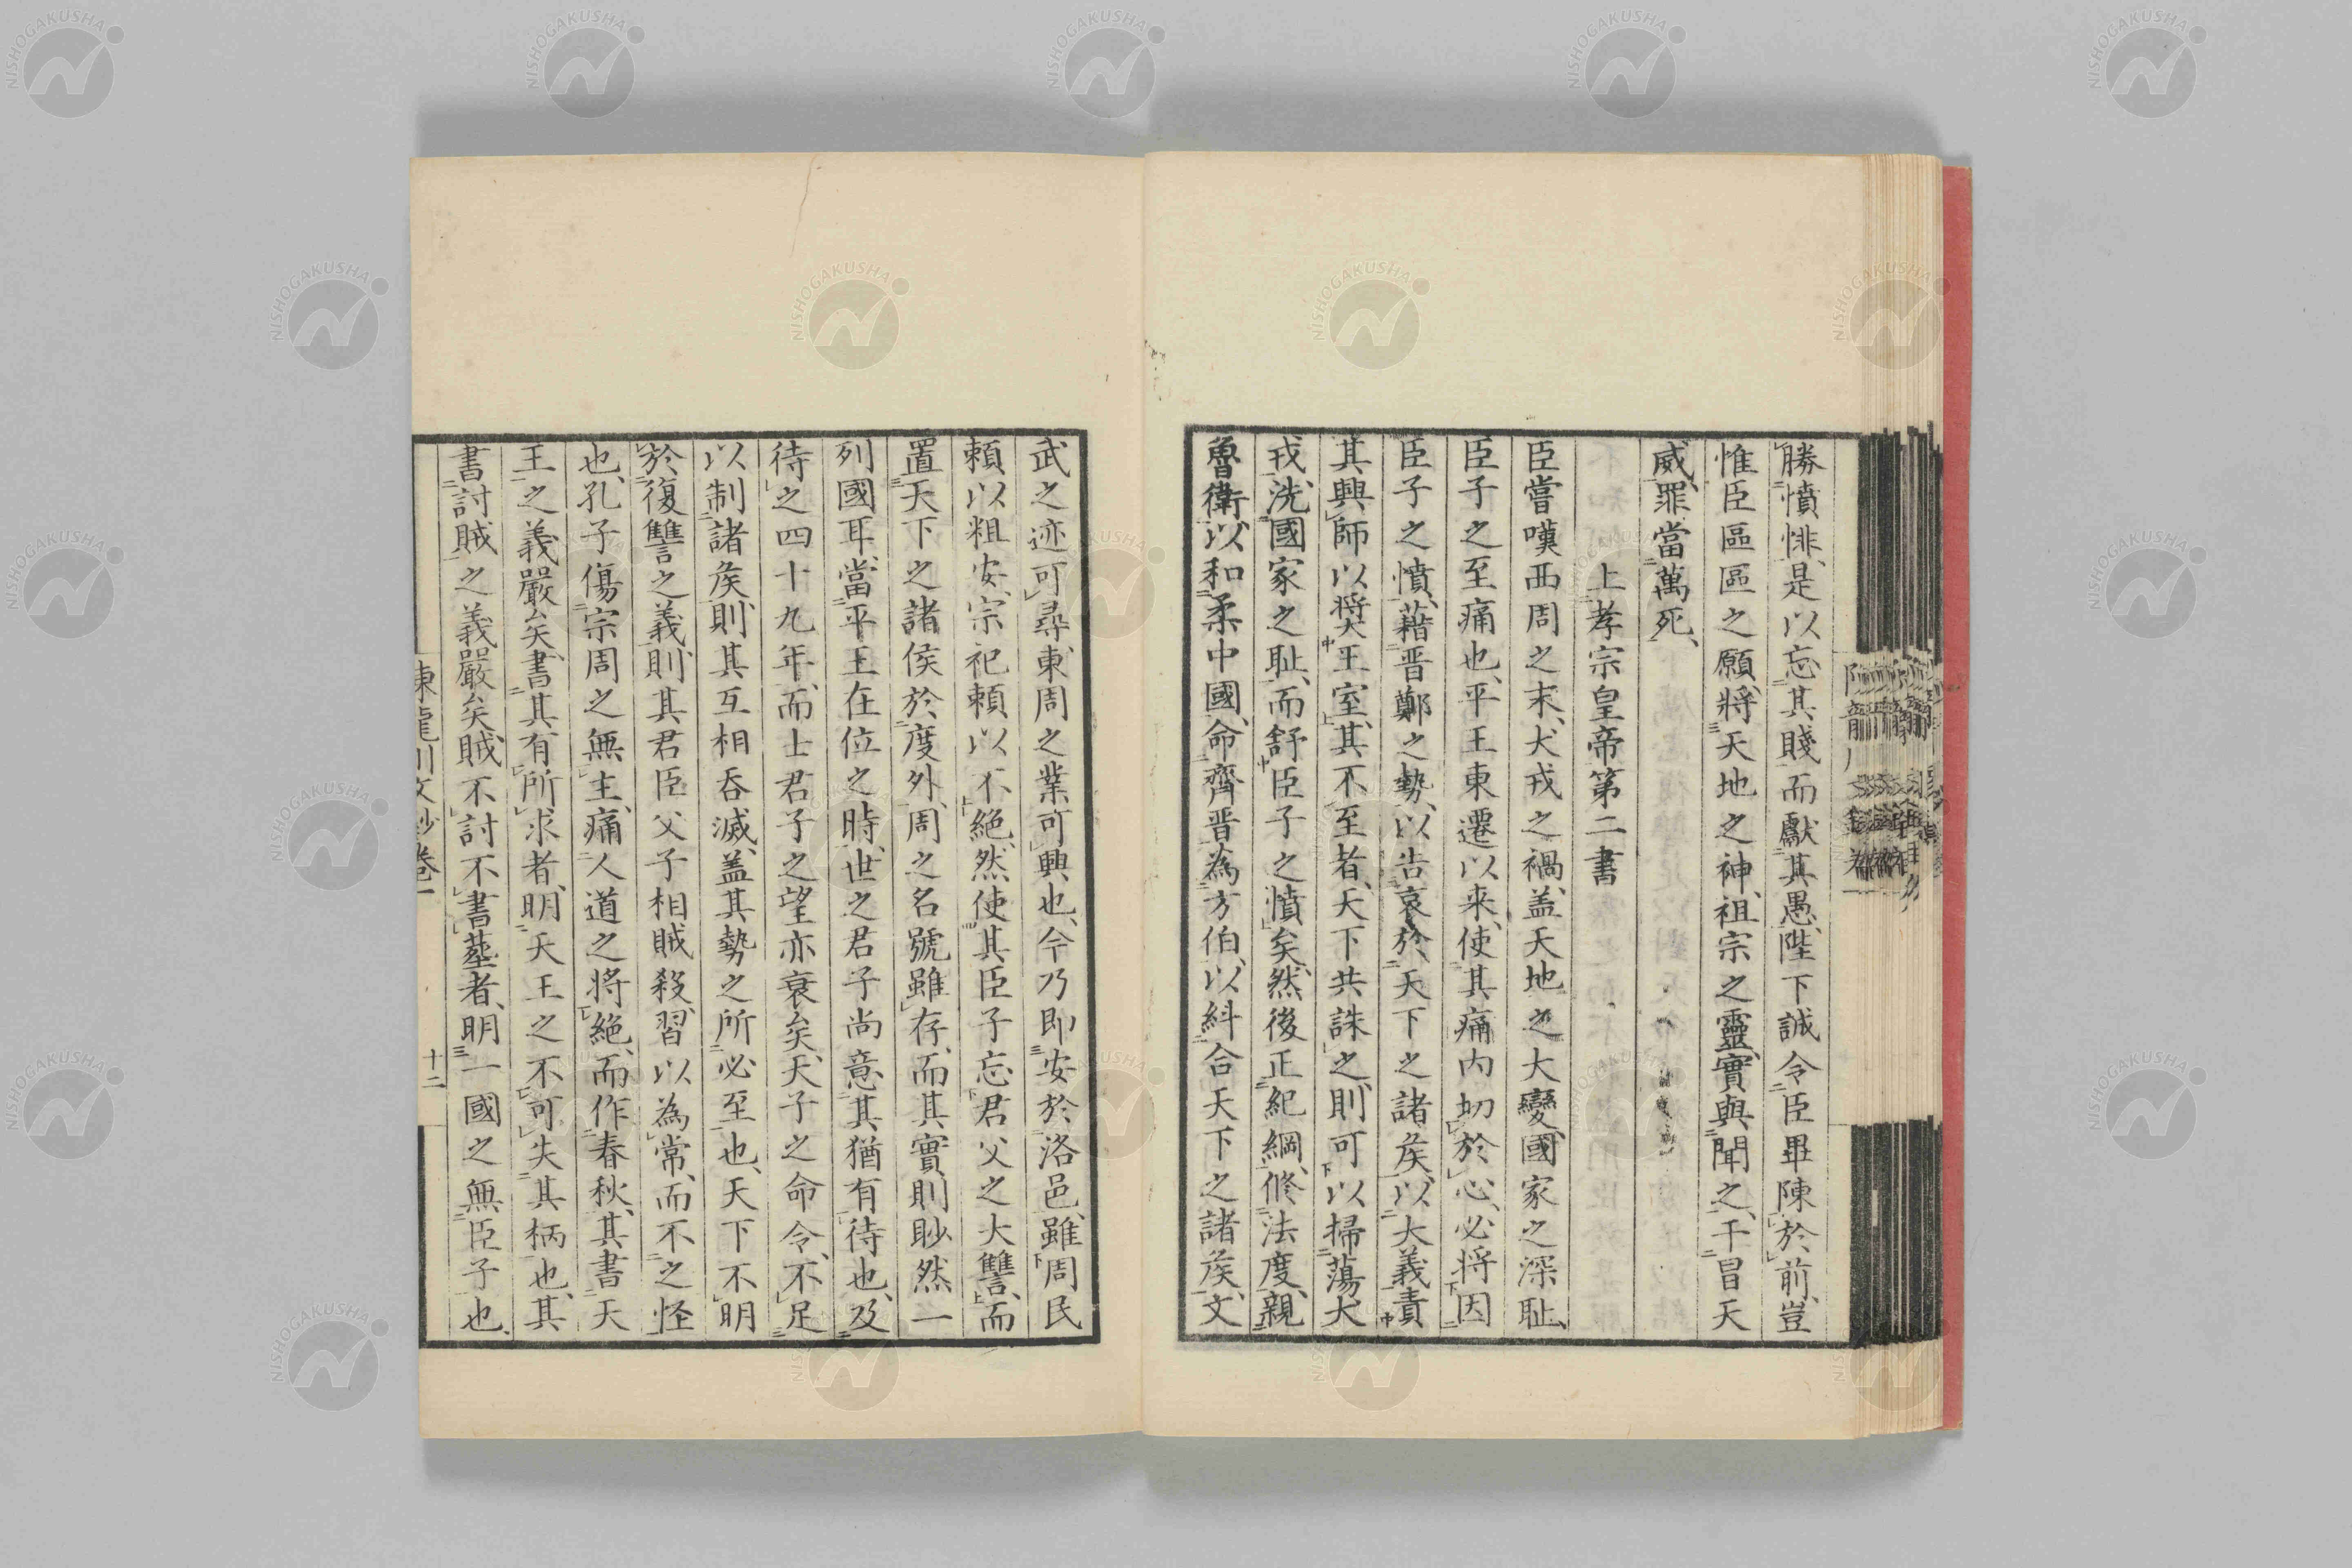 勝憤悱、是以忘其賤而獻其愚、陛下誠令臣畢陳於前、豈
惟臣區區之願、將天地之神、祖宗之靈、實與聞之、干冒天
威、罪當萬死、
上孝宗皇帝第二書
臣嘗嘆西周之末、犬戎之禍、盖天地之大變、國家之深耻、
臣子之至痛也、平王東遷以来、使其痛内切於心、必將因
臣子之憤、藉晋鄭之勢、以告哀於天下之諸矦、以大義責
其興師以將犬王室、其不至者、天下共誅之、則可以掃蕩犬
戎、洗國家之耻、而舒臣子之憤矣、然後正紀綱、修法度、親
魯衛以和柔中國、命齊晋為方伯、以糾合天下之諸矦、文
武之迹可尋、東周之業可興也、今乃即安於洛邑、雖周民
頼以粗安、宗祀頼以不絶、然使其臣子忘君父之大讐、而
置天下之諸侯於度外、周之名號雖存、而其實則眇然一
列國耳、當平王在位之時、世之君子尚意其猶有待也、及
待之四十九年、而士君子之望亦衰矣、天子之命令、不足
以制諸矦、則其互相吞滅、盖其勢之所必至也、天下不明
於復讐之義、則其君臣父子相賊殺、習以為常、而不之怪
也、孔子傷宗周之無主、痛人道之將絶、而作春秋、其書天
王之義嚴矣、書其有所求者、明天王之不可失其柄也、其
書討賊之義嚴矣、賊不討不書葬者、明一國之無臣子也、
陳龍川文鈔卷一
十二
NISHOGAKUSHA